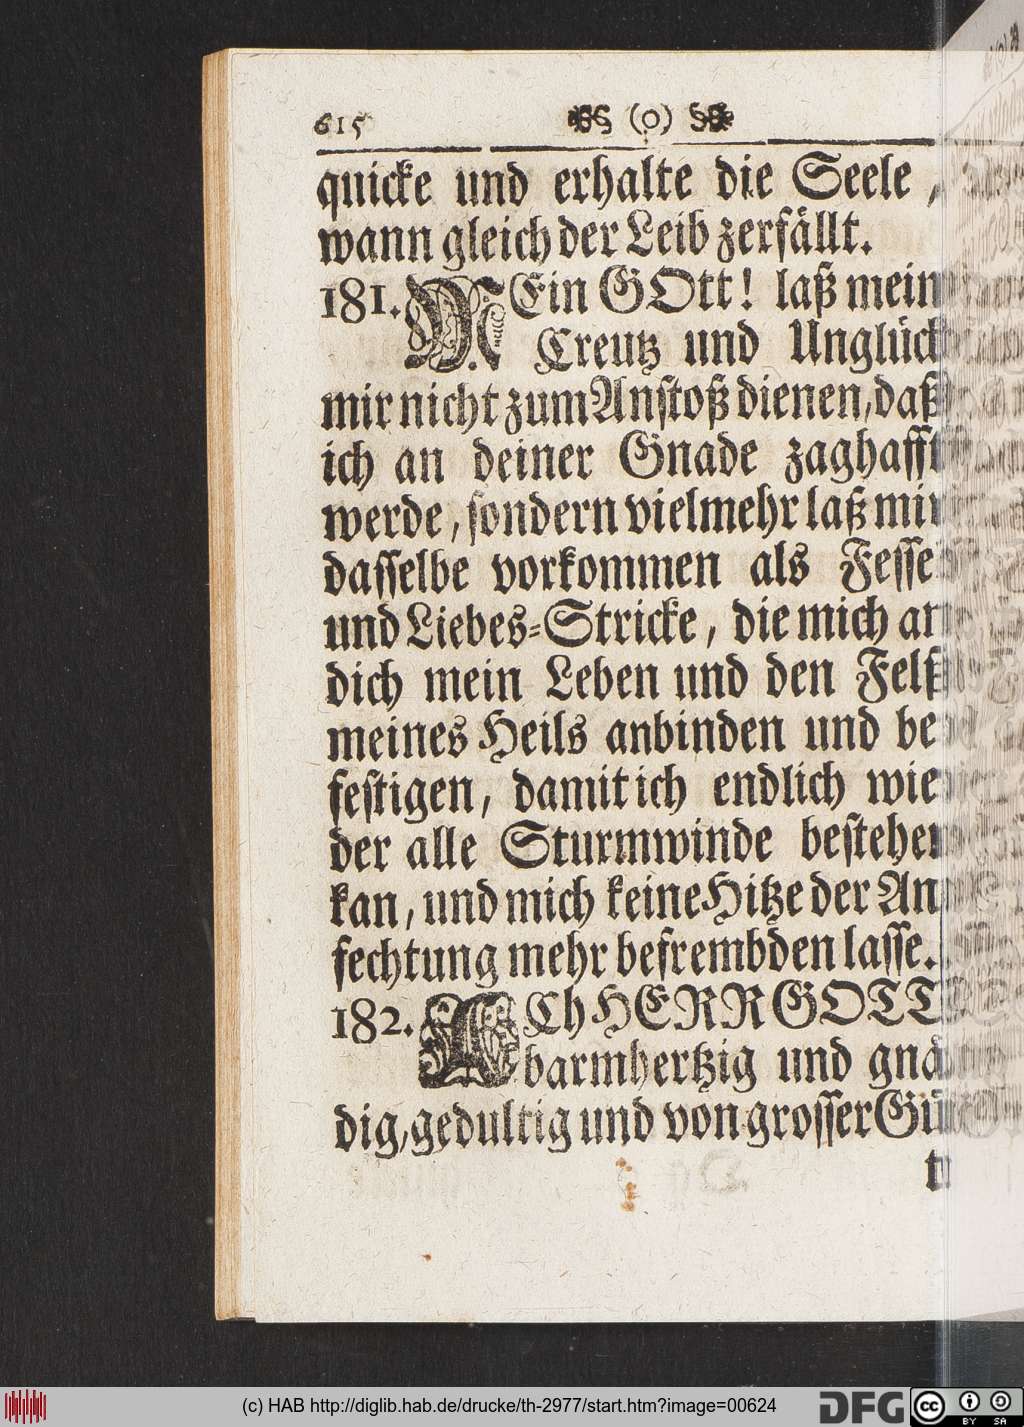 615 (o)
quicke und erhalte die Seele,
wann gleich der Leib zerfällt.
181. MEin GOtt! laß mein
Creutz und Unglück
mir nicht zum Anstoß dienen, daß
ich an deiner Gnade zaghafft
werde, sondern vielmehr laß mir
dasselbe vorkommen als Fesse
und Liebes-Stricke, die mich an
dich mein Leben und den Felß
meines Heils anbinden und be
festigen, damit ich endlich wie
der alle Sturmwinde bestehen
kan, und mich keine Hitze der An
fechtung mehr befrembden lasse.
182. ACh HERR GOTT
barmhertzig und gnä
dig, gedultig und von grosser Gü
t
(c) HAB http://diglib.hab.de/drucke/th-2977/start.htm?image=00624
DFG
cc BY SA